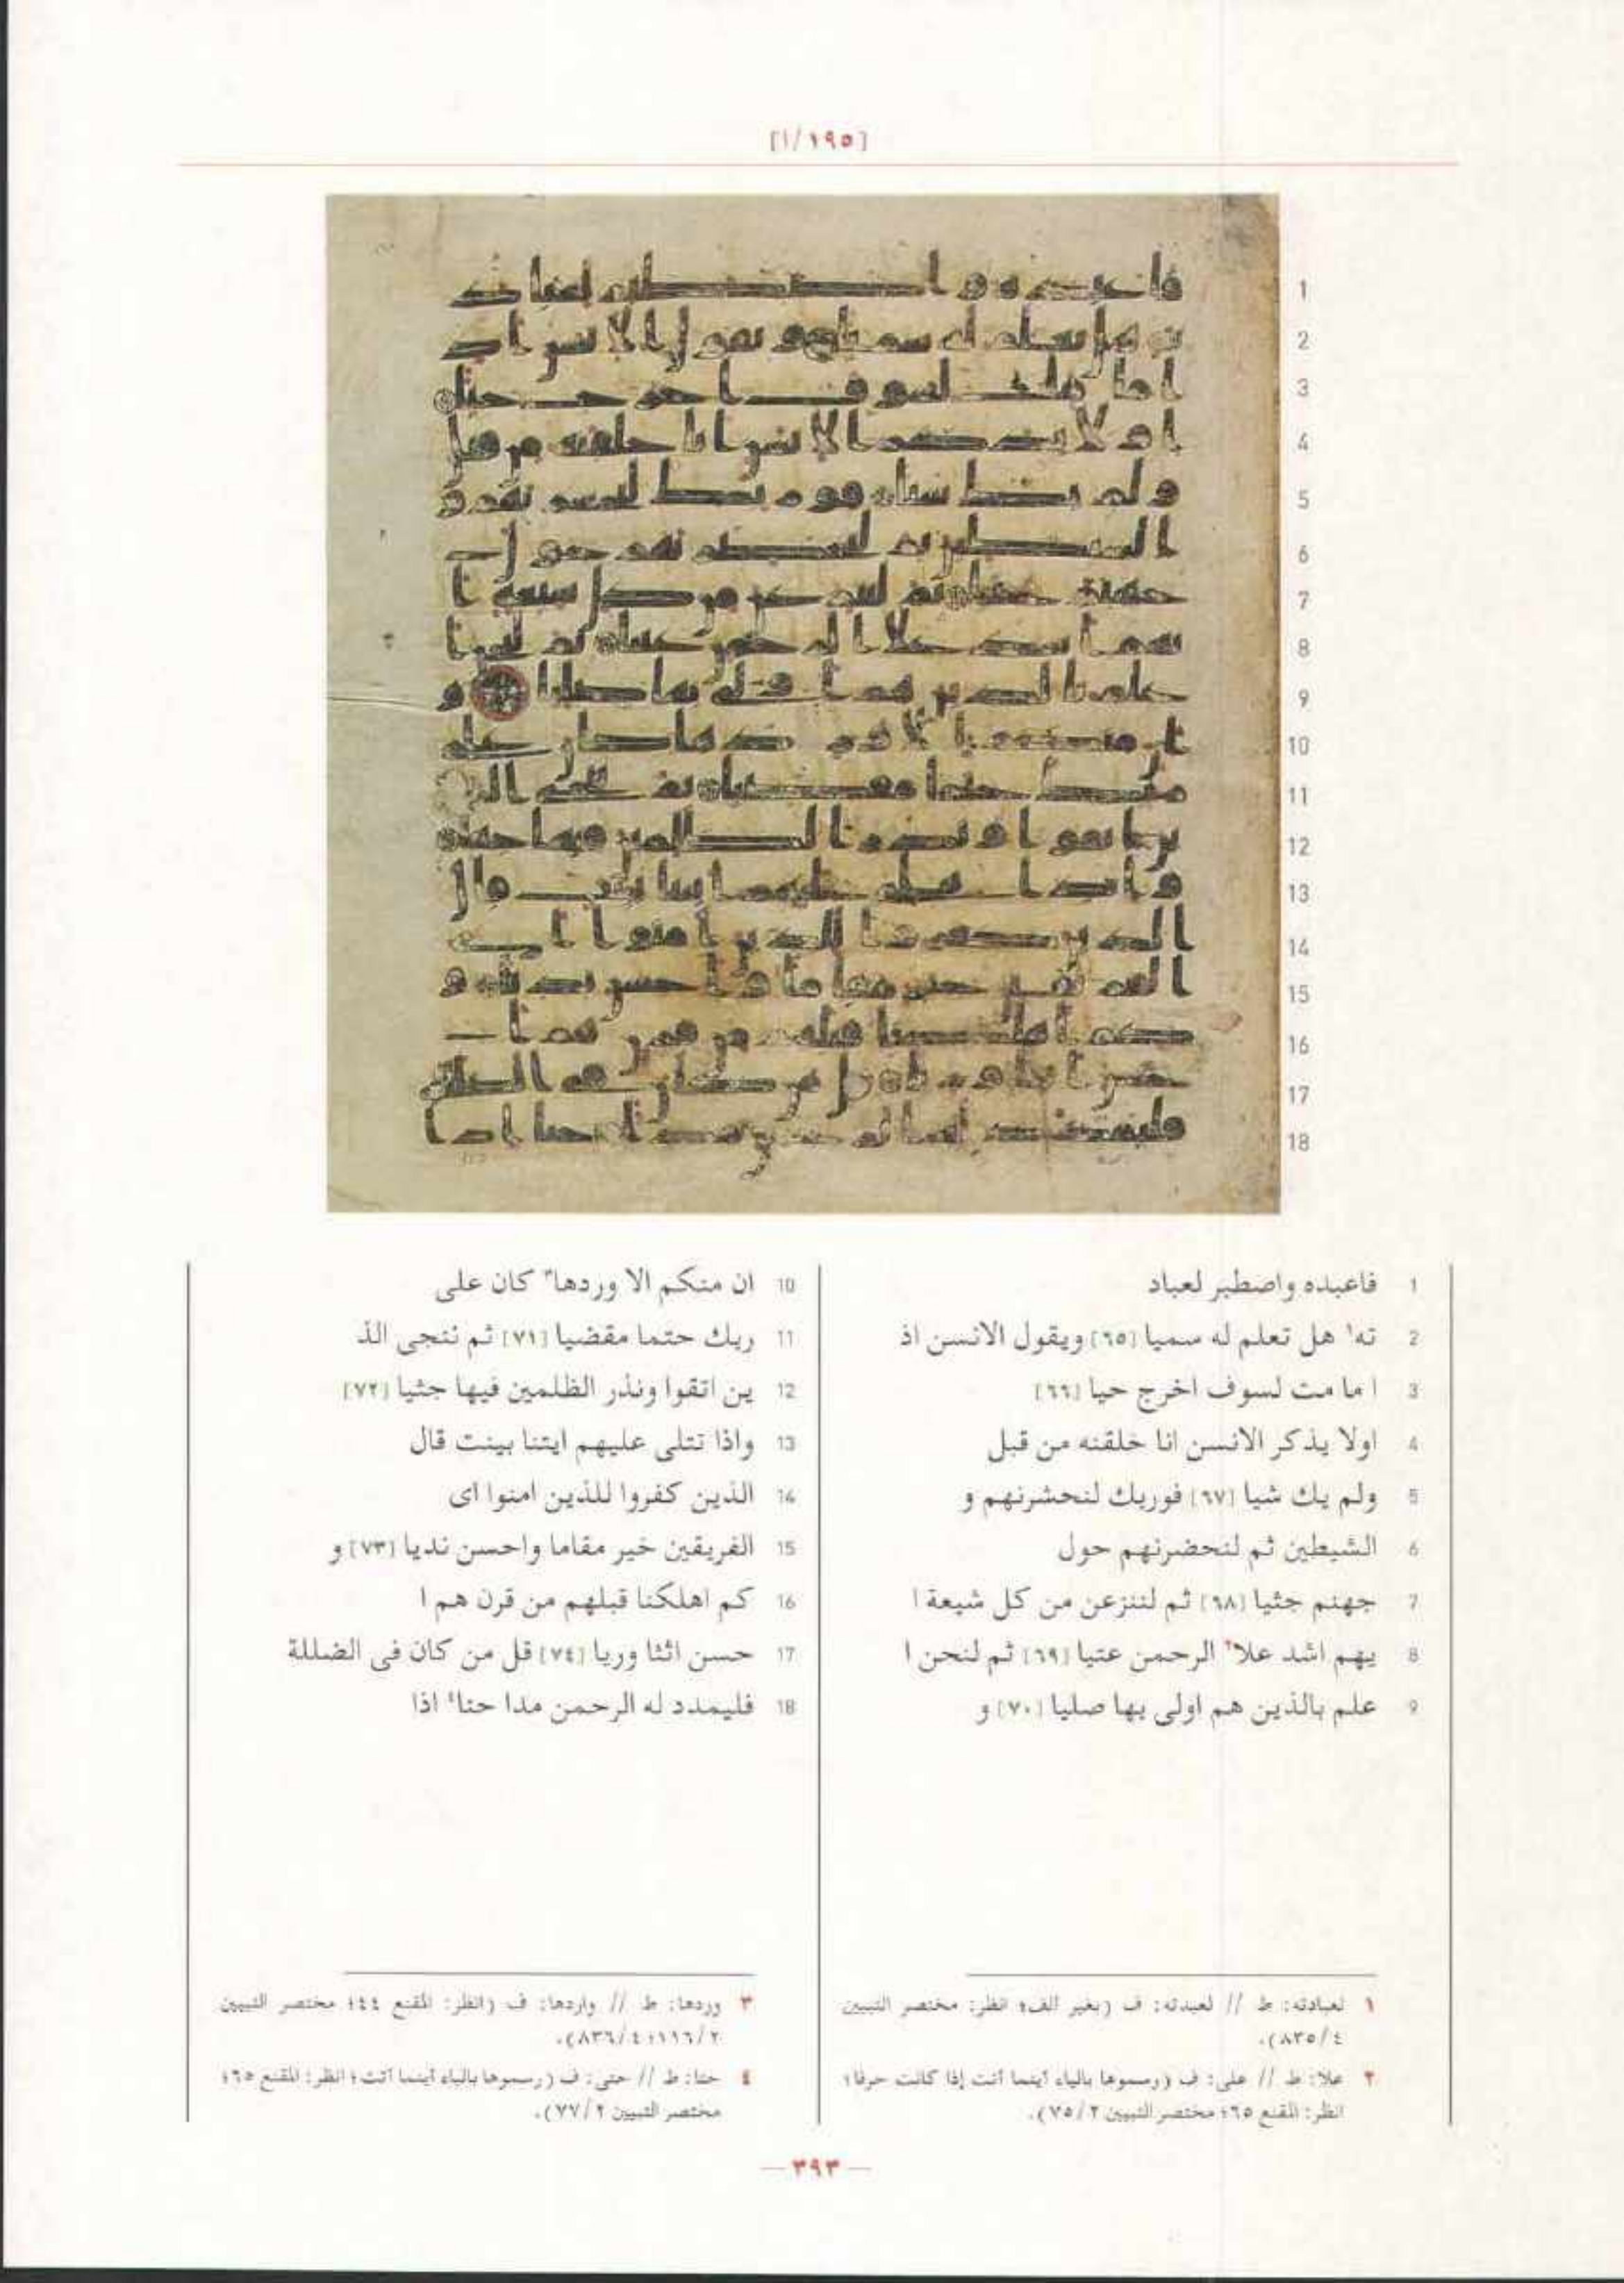 [١٩٥/١]
1 فاعبده واصطبر لعباد
2 ته١ هل تعلم له سميا [٦٥] ويقول الانسن اذ
3 ا ما مت لسوف اخرج حيا [٦٦]
4 اولا يذكر الانسن انا خلقنه من قبل
5 ولم يك شيا [٦٧] فوربك لنحشرنهم و
6 الشيطين ثم لنحضرنهم حول
7 جهنم جثيا [٦٨] ثم لننزعن من كل شيعة ا
8 يهم اشد علا٢ الرحمن عتيا [٦٩] ثم لنحن ا
9 علم بالذين هم اولى بها صليا [٧٠] و
10 ان منكم الا وردها٣ كان على
11 ربك حتما مقضيا [٧١] ثم ننجى الذ
12 ين اتقوا ونذر الظلمين فيها جثيا [٧٢]
13 واذا تتلى عليهم ايتنا بينت قال
14 الذين كفروا للذين امنوا اى
15 الفريقين خير مقاما واحسن نديا [٧٣] و
16 كم اهلكنا قبلهم من قرن هم ا
17 حسن اثثا وريا [٧٤] قل من كان فى الضللة
18 فليمدد له الرحمن مدا حتا٤ اذا
١ لعبادته: ط // لعبدته: ف (بغير ألف؛ انظر: مختصر التبيين
٨٣٥/٤).
٢ علا: ط // على: ف (رسموها بالياء أينما أتت إذا كانت حرفا؛
انظر: المقنع ٦٥؛ مختصر التبيين ٧٥/٢).
٣ وردها: ط // واردها: ف (انظر: المقنع ٤٤؛ مختصر التبيين
١١٦/٢؛ ٨٣٦/٤).
٤ حتا: ط // حتى: ف (رسموها بالياء أينما أتت؛ انظر: المقنع ٦٥؛
مختصر التبيين ٧٧/٢).
— ٣٩٣ —